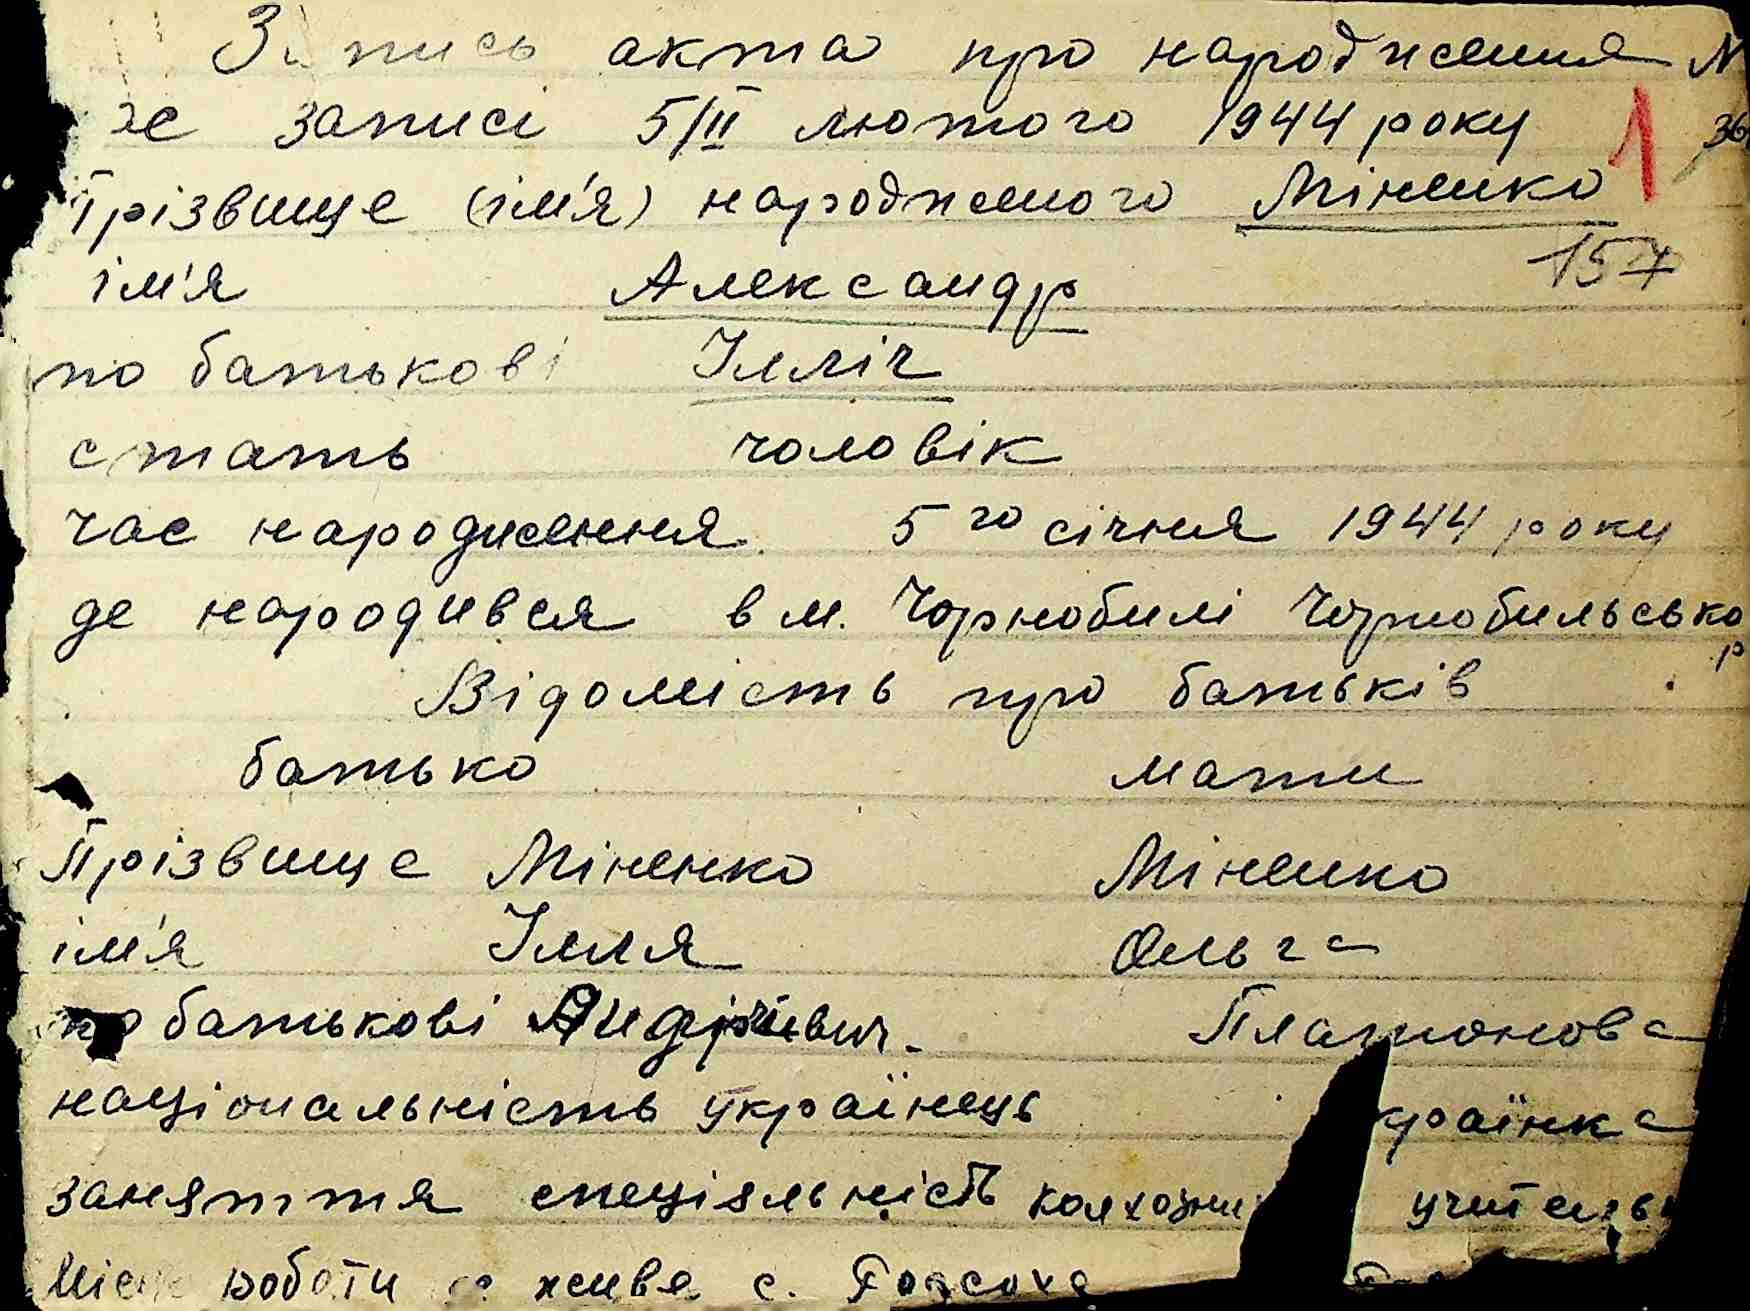 Запись акта про народження №
же записі 5/II лютого 1944 року 1
Прізвище (ім'я) народженого Міненко
157
ім'я Александр
по батькові Ілліч
стать чоловік
час народження 5го січня 1944 року
де народився в м. Чорнобилі Чорнобильсько
р
Відомість про батьків
батько мати
Прізвище Міненко Міненко
ім'я Ілля Ольга
по батькові Андрієвич. Платонова
національність українець країнка
заняття спеціяльність колхозни учитель
Місце роботи живе с.